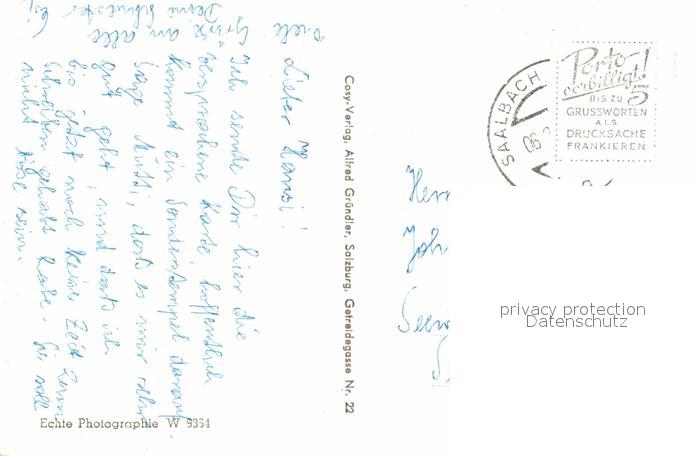 Lieber Hansi!
Ich sende Dir hier die
versprochene Karte, hoffentlich
kommt ein Sonderstempel darauf
Sage Mutti, daß es mir sehr
gut geht, und daß ich
bis jetzt noch keine Zeit zum
Schreiben gehabt habe. Sie soll
nicht böse sein.
Viele
Grüße an alle
Deine Schwester
Cosy-Verlag, Alfred Gründler, Salzburg, Getreidegasse Nr. 22
Echte Photographie W 9364
SAALBACH
Porto
verbilligt!
BIS ZU 5
GRUSSWORTEN
ALS
DRUCKSACHE
FRANKIEREN
Herr
Joh
privacy protection
Datenschutz